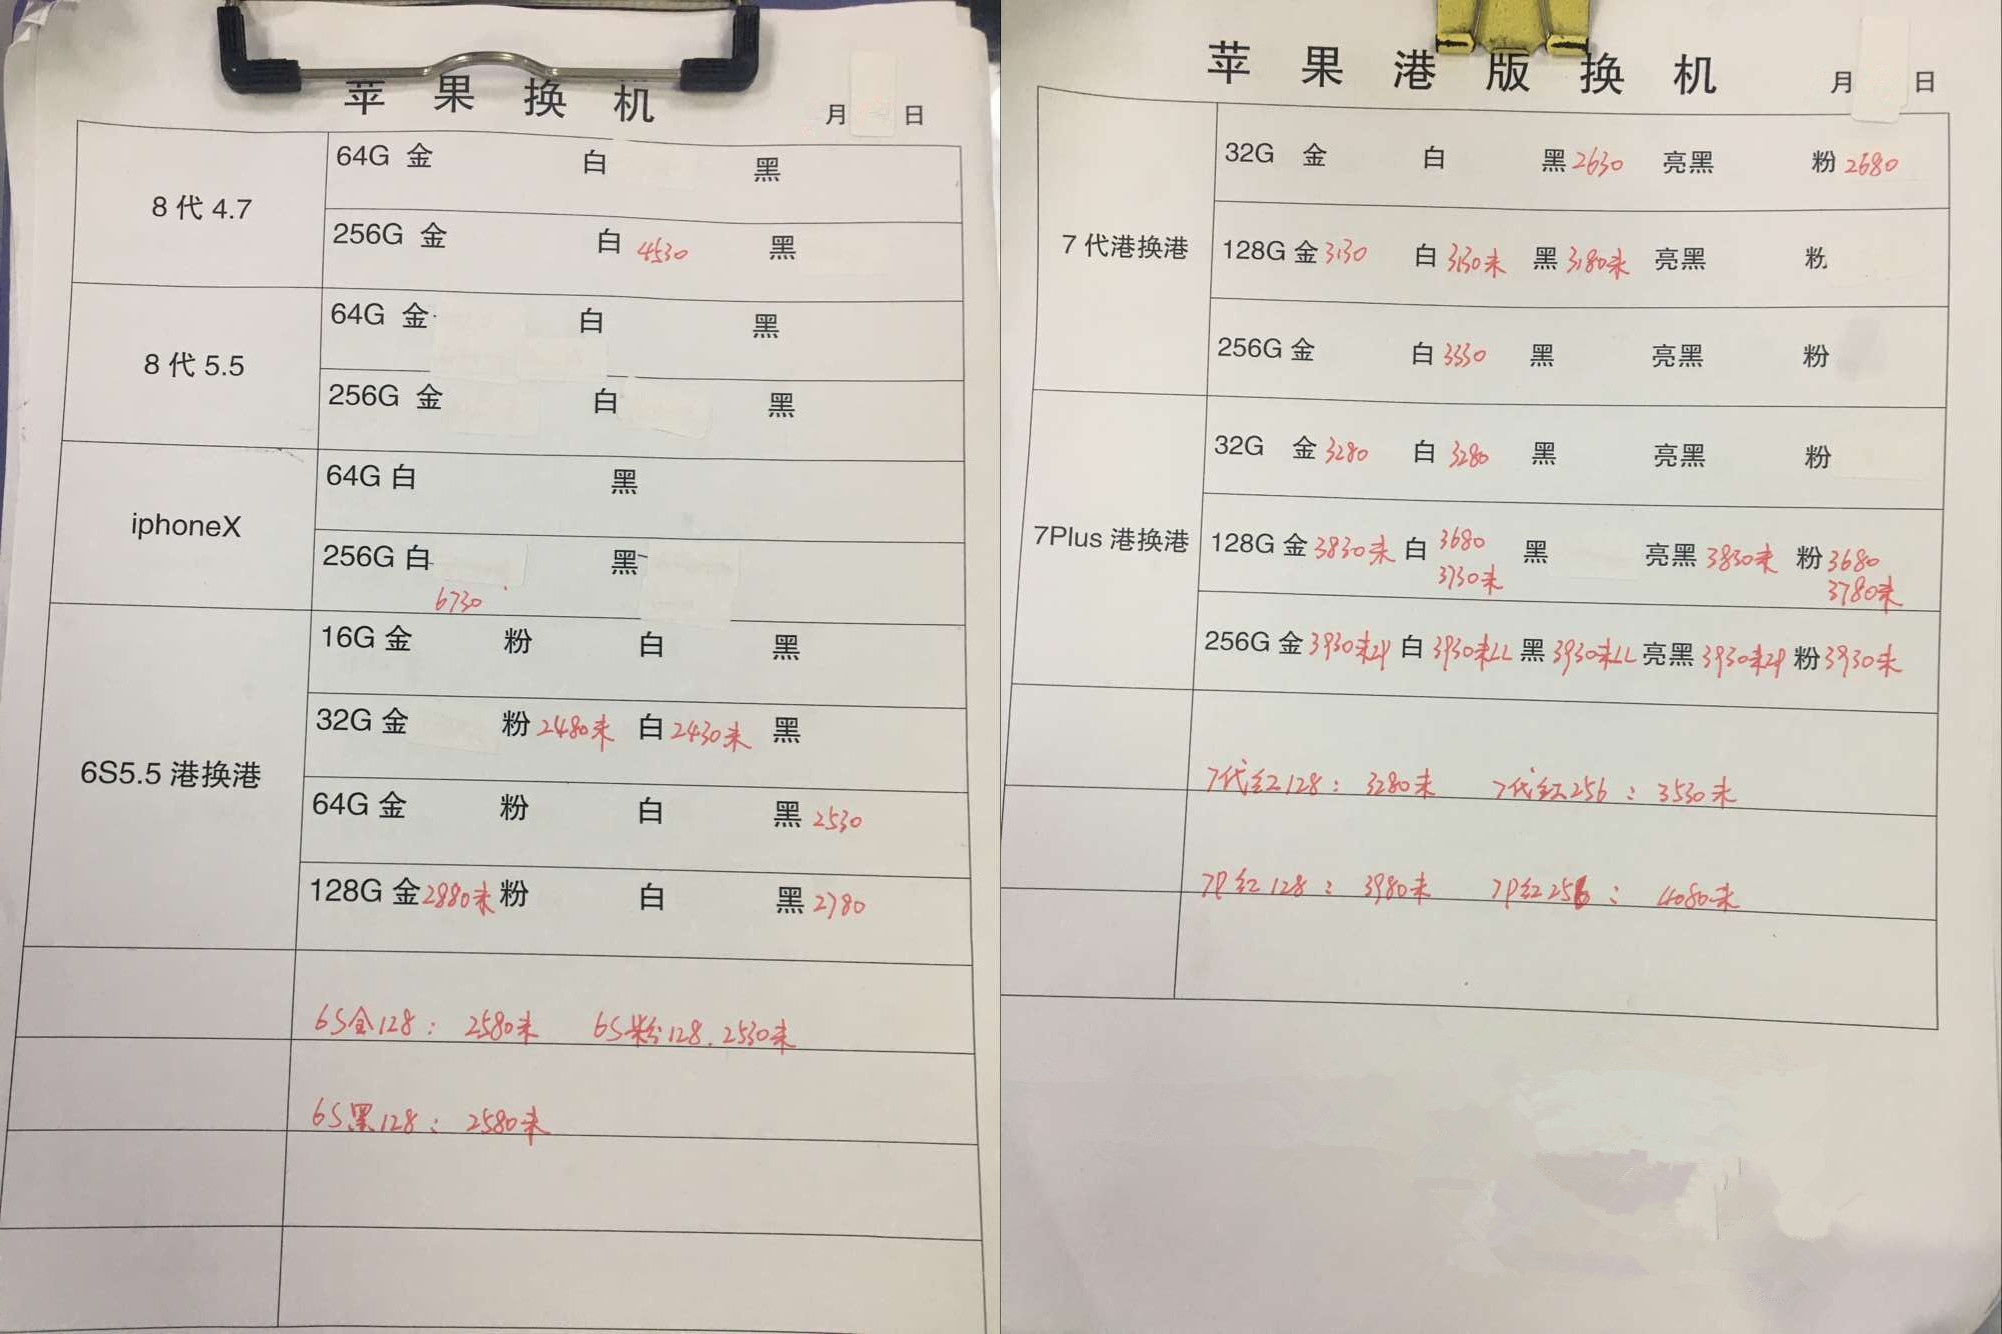 苹果换机
月 日
8代4.7
64G 金 白 黑
256G 金 白 4530 黑
8代5.5
64G 金 白 黑
256G 金 白 黑
iphoneX
64G 白 黑
256G 白 黑
6730
6S5.5港换港
16G 金 粉 白 黑
32G 金 粉 2480未 白 2430未 黑
64G 金 粉 白 黑 2530
128G 金 2880未 粉 白 黑 2780
6S金128: 2580未 6S粉128. 2530未
6S黑128: 2580未
苹果港版换机
月 日
7代港换港
32G 金 白 黑 2630 亮黑 粉 2680
128G 金 3130 白 3130未 黑 3180未 亮黑 粉
256G 金 白 3330 黑 亮黑 粉
7Plus港换港
32G 金 3280 白 3280 黑 亮黑 粉
128G 金 3830未 白 3680 黑 亮黑 3830未 粉 3680
3730未 3780未
256G 金 3930未ZP 白 3930未LL 黑 3930未LL 亮黑 3930未ZP 粉 3930未
7代红128: 3280未 7代红256: 3530未
7P红128: 3980未 7P红256: 4080未